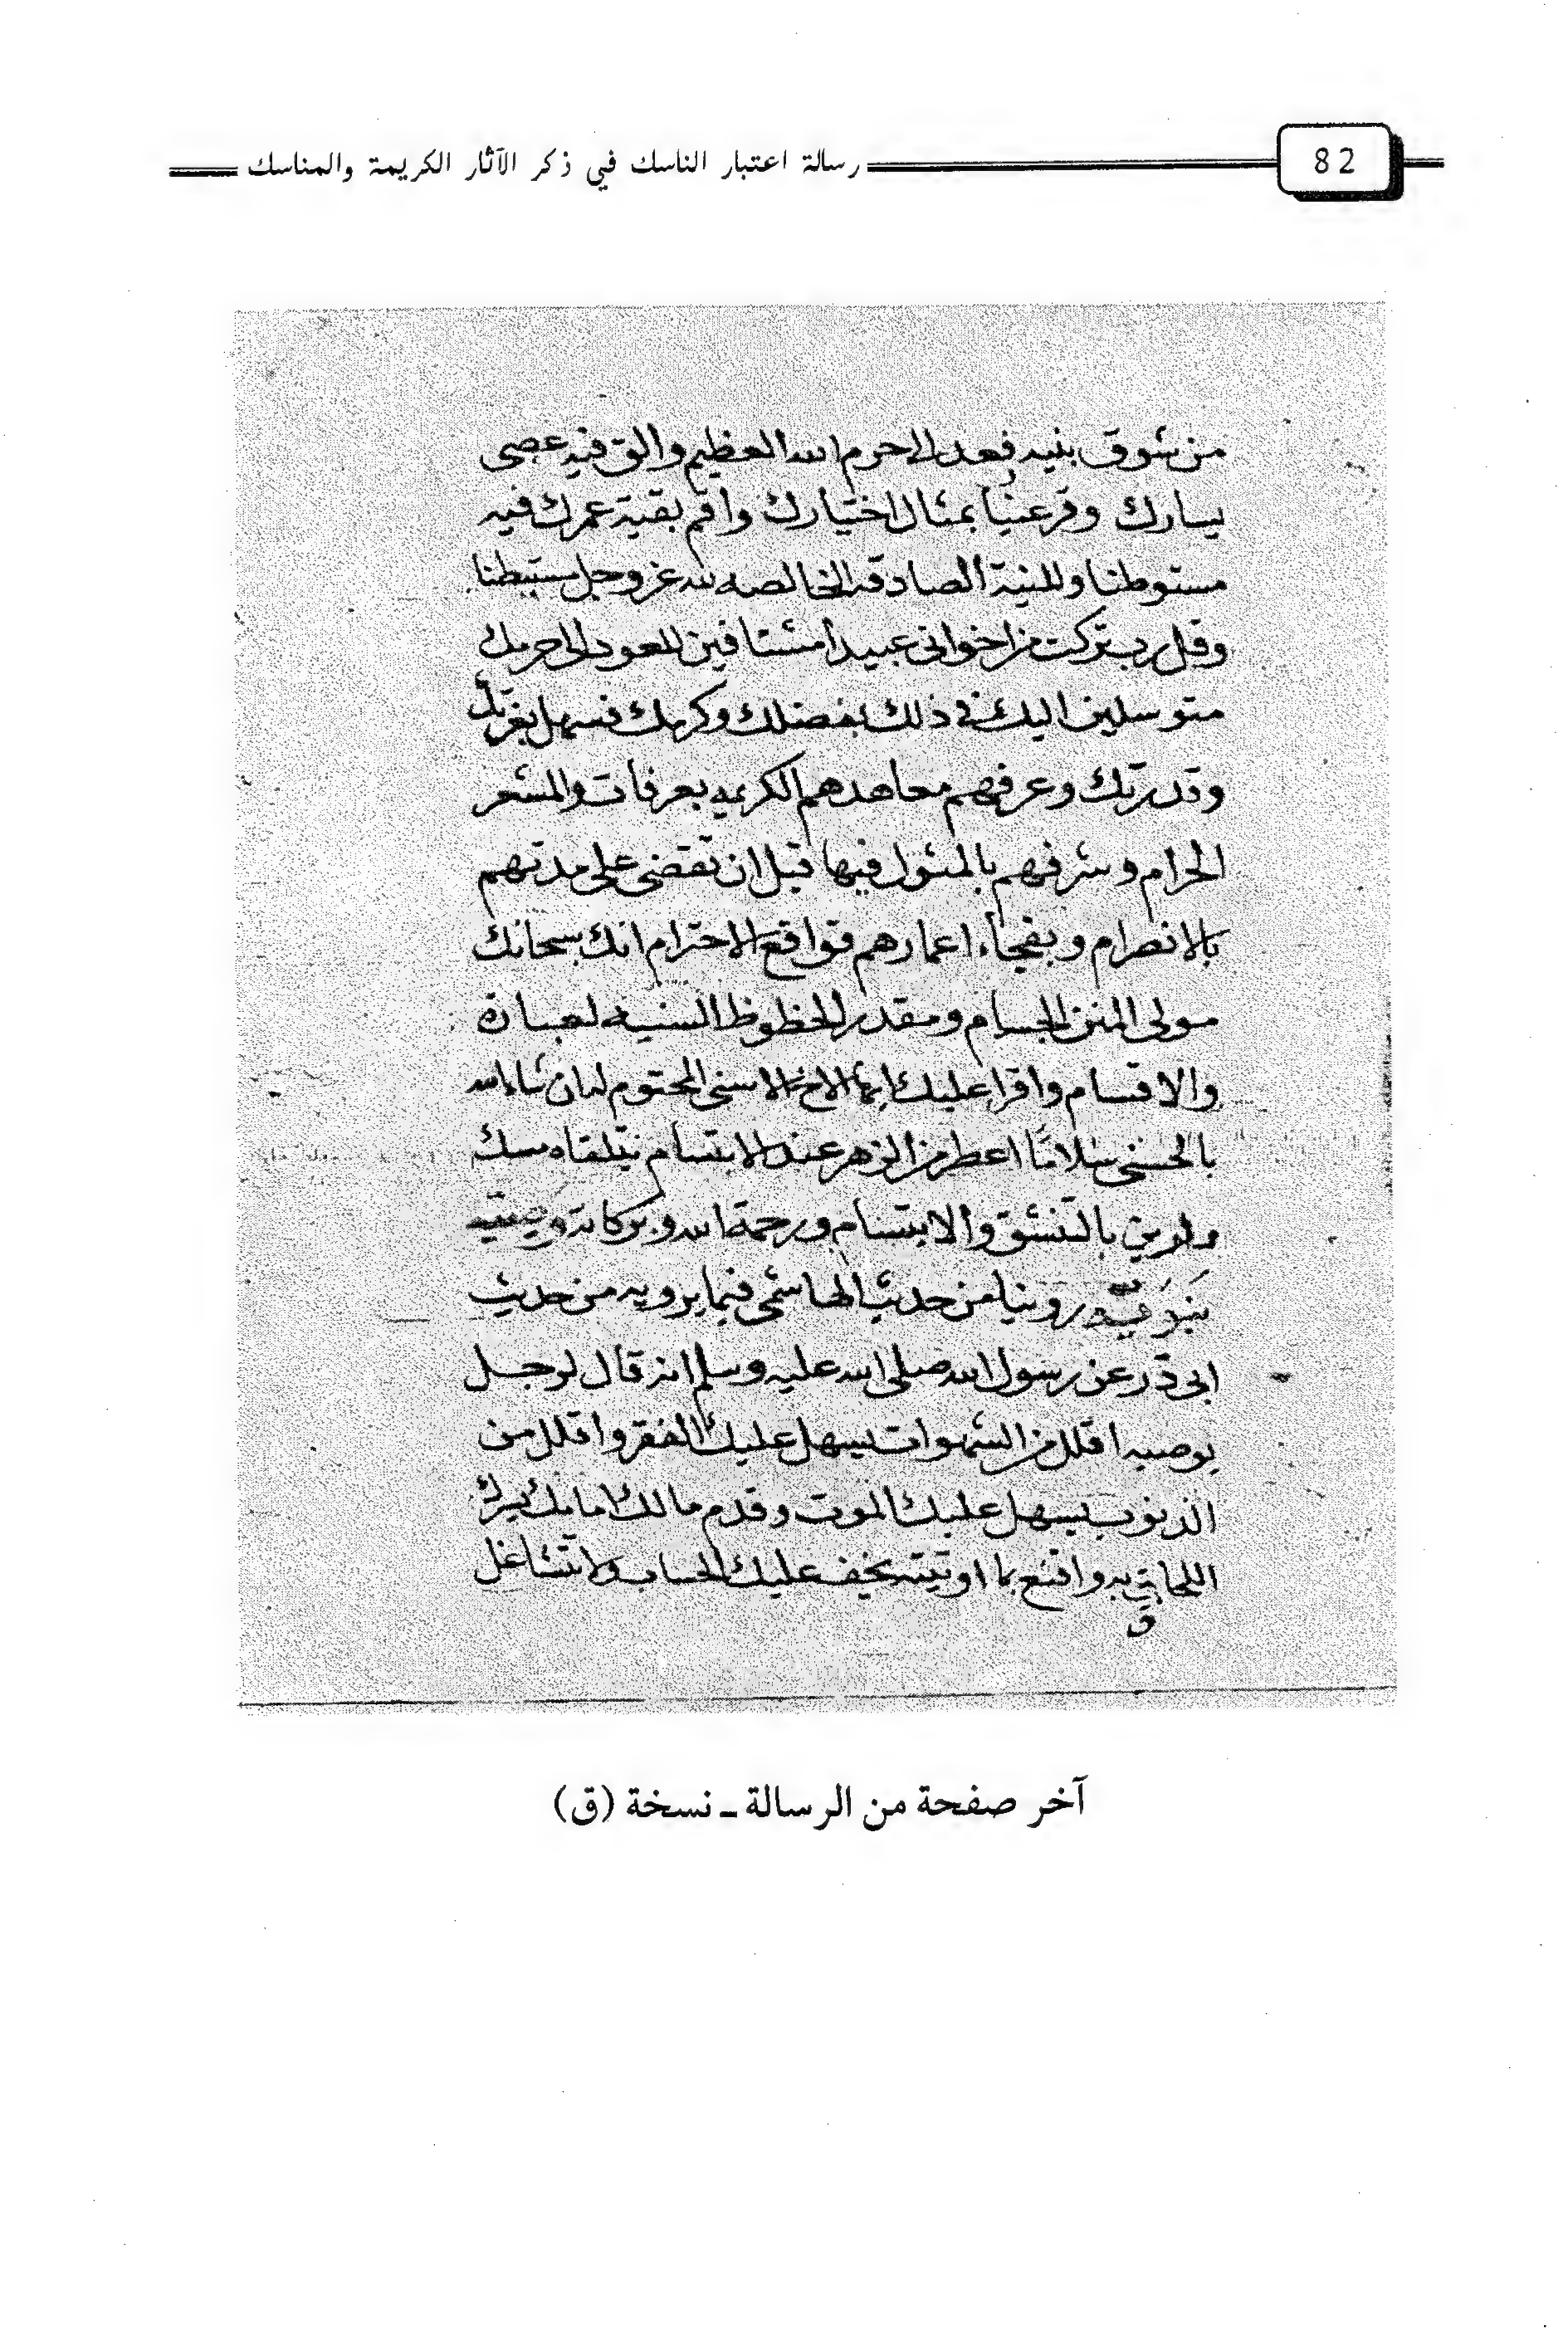 82
رسالة اعتبار الناسك في ذكر الآثار الكريمة والمناسك
من شوق بنيه فعد الى حرم الله العظيم والق فيه عصى
يسارك وقر عنيا بمثال اختيارك واقم بقية عمرك فيه
مستوطنا وللنية الصادقه الخالصه لله عز وجل مستبطنا
وقل رب تركت من اخوانى عبيدا مشتاقين للعود الى حرمك
متوسلين اليك فى ذلك بفضلك وكرمك فسهل بعزتك
وقدرتك وعرفهم معاهدهم الكريمه بعرفات والمشعر
الحرام وشرفهم بالمثول فيها قبل ان تقضى على مدتهم
بالانصرام وبفجأء اعمارهم قواقع الاخترام انك سبحانك
مولى المنن الجسام ومقدر الحظوظ السنيه لعباده
والاقسام واقرا عليك ايها الاخ الاسنى المختوم لها ان شاء الله
بالحسنى سلاما اعطر من الزهر عند الابتسام تتلقاه مسك
دارين بالتنشق والابتسام ورحمة الله وبركاته وصية
نبوية روينا من حديث الهاشمى فيما يرويه من حديث
ابى ذر عن رسول الله صلى الله عليه وسلم انه قال لرجل
يوصيه اقلل من الشهوات يسهل عليك الفقر واقلل من
الذنوب يسهل عليك الموت وقدم مالك امامك يسرك
اللحاق به واقنع بما اوتيته يخف عليك الحساب ولا تتشاغل
ق
آخر صفحة من الرسالة ـ نسخة (ق)